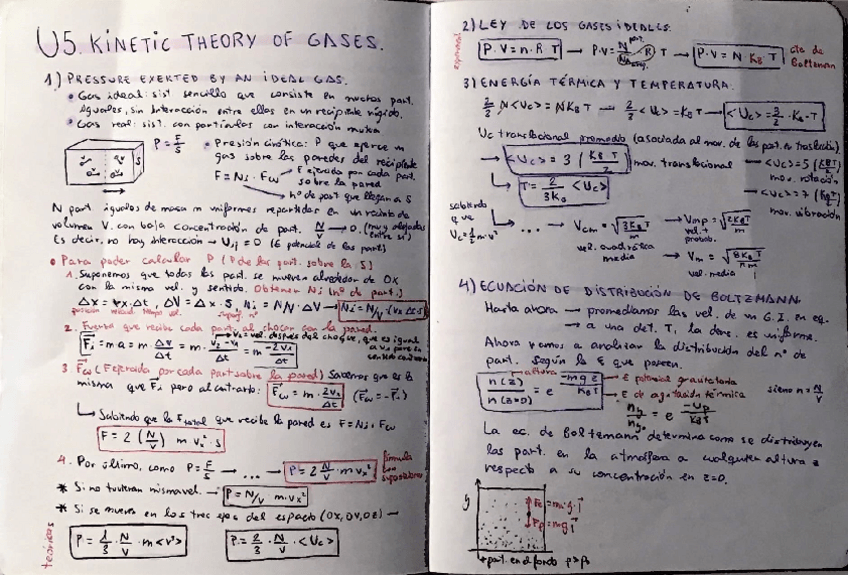 U5. KINETIC THEORY OF GASES.
1) PRESSURE EXERTED BY AN IDEAL GAS.
• Gas ideal: sist. sencillo que consiste en muchas part.
iguales, sin interacción entre ellas en un recipiente rígido.
• Gas real: sist. con partículas con interacción mutua
P = F/S
• Presión cinética: P que ejerce un
gas sobre las paredes del recipiente
F = Ni · Fw
F ejercida por cada part.
sobre la pared
nº de part que llegan a S
N part iguales de masa m uniformes repartidas en un recinto de
volumen V. con baja concentración de part. N/V → 0. (muy alejadas
entre sí)
Es decir, no hay interacción → Uij = 0 (E potencial de las part)
• Para poder calcular P (P de las part. sobre la S)
1. Suponemos que todas las part. se mueven alrededor de OX
con la misma vel. y sentido. Obtener Ni (nº de part.)
Δx = vx · Δt, ΔV = Δx · S, Ni = N/V · ΔV → Ni = N/V · (vx Δt · S)
2. Fuerza que recibe cada part. al chocar con la pared.
Fi = m a = m · Δv/Δt = m · (v2 - v1)/Δt = m · -2v1/Δt
v2 = vel. después del choque, que es igual
a v1 pero en
sentido contrario
3. Fw (F ejercida por cada part sobre la pared) Sabemos que es la
misma que Fi pero al contrario: Fw = m · 2vx/Δt (Fw = -Fi)
Sabiendo que la F total que recibe la pared es F = Ni · Fw
F = 2 (N/V) m vx² · S
4. Por último, como P = F/S → ... → P = 2 N/V · m vx²
fórmula
con
suposiciones
* Si no tuvieran misma vel. → P = N/V m · vx²
* Si se mueven en los tres ejes del espacio (OX, OY, OZ) →
teóricas
P = 1/3 · N/V · m <v²>
P = 2/3 · N/V · <Uc>
2) LEY DE LOS GASES IDEALES.
P · V = n · R T → P · V = N/NAvog. R T → P · V = N KB T
part.
cte de
Boltzman
3) ENERGÍA TÉRMICA Y TEMPERATURA.
2/3 N <Uc> = N KB T → 2/3 <Uc> = KB T → <Uc> = 3/2 · KB · T
Uc translacional promedio (asociada al mov. de las part. en traslación)
<Uc> = 3 (KB T/2) mov. translacional
<Uc> = 5 (KB T/2)
mov. rotación
T = 2/3KB <Uc>
<Uc> = 7 (KB T/2)
mov. vibración
sabiendo
que
Uc = 1/2 m · v²
... → Vcm = √3KB T/m
vel. cuadrática
media
Vmp = √2KB T/m
vel. +
probab.
Vm = √8KB T/π m
vel. media
4) ECUACIÓN DE DISTRIBUCIÓN DE BOLTZMANN.
Hasta ahora → promediamos las vel. de un G.I. en eq.
→ a una det. T, la dens. es uniforme.
Ahora vamos a analizar la distribución del nº de
part. según la E que poseen.
altura
n(z)/n(z=0) = e -mgz/KB T
E potencial gravitatoria
E de agitación térmica
siendo n = N/V
ny/ny0 = e -Up/KB T
La ec. de Boltzmann determina como se distribuyen
las part. en la atmósfera a cualquier altura z
respecto a su concentración en z=0.
y
Pp = m g j
+ part. en el fondo